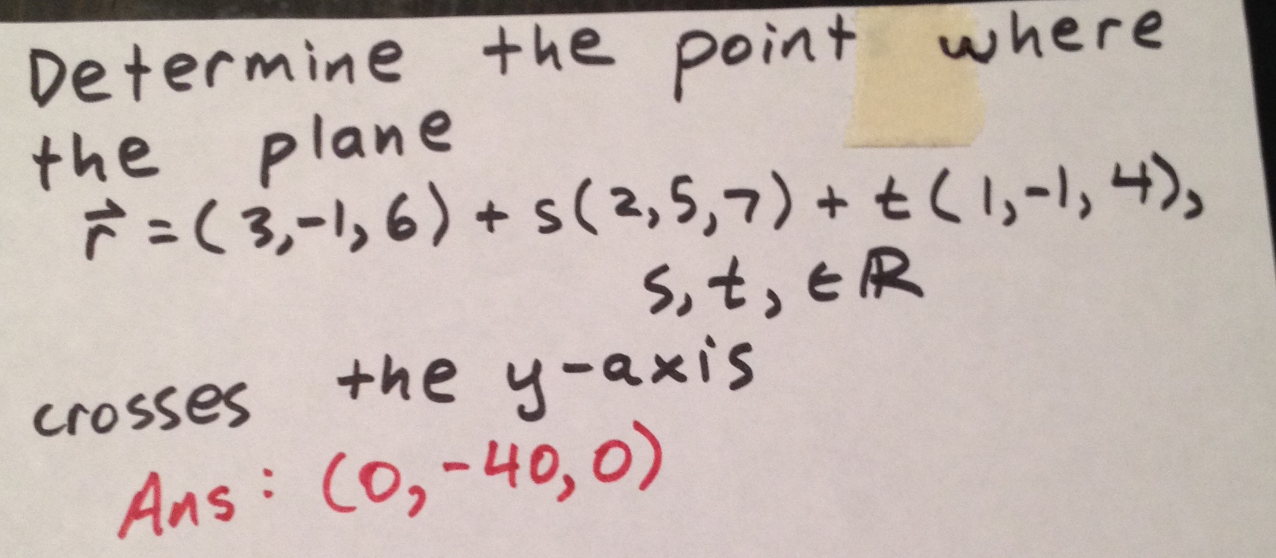 Determine the point where
the plane
r⃗ = (3,-1,6) + s(2,5,7) + t(1,-1,4),
s,t, ∈ ℝ
crosses the y-axis
Ans: (0,-40,0)